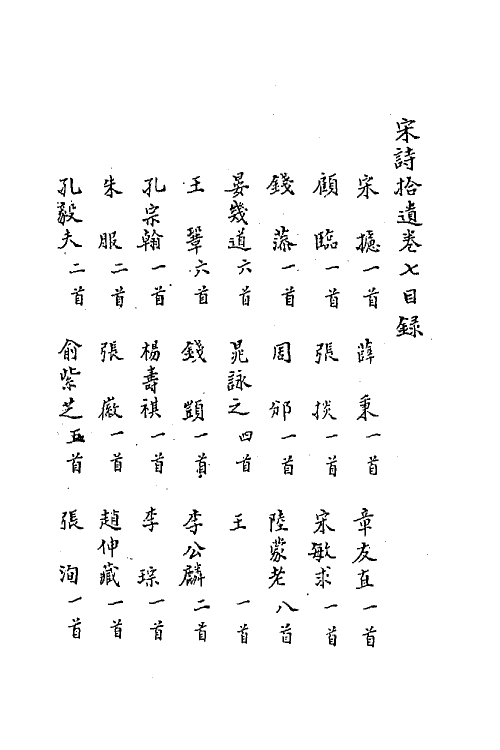 宋詩拾遺卷七目録
宋摅一首 薛秉一首 章友直一首
顧臨一首 張掞一首 宋敏求一首
錢藻一首 周邠一首 陸蒙老八首
晏幾道六首 晁詠之四首 王 一首
王鞏六首 錢顗一首 李公麟二首
孔宗翰一首 楊壽祺一首 李琮一首
朱服二首 張徽一首 趙仲藏一首
孔毅夫二首 俞紫芝五首 張洵一首